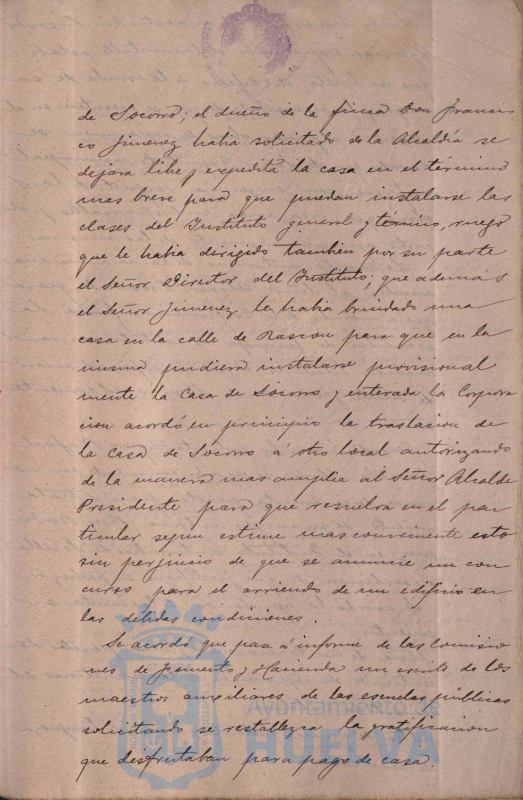 de Socorro; el dueño de la finca Don Francis
co Jimenez habia solicitado de la Alcaldía se
dejara libre y expedita la casa en el término
mas breve para que puedan instalarse las
clases del Instituto general y técnico, ruego
que le habia dirigido tambien por su parte
el Señor Director del Instituto; que además
el Señor Jimenez le habia brindado una
casa en la calle de Rascon para que en la
misma pudiera instalarse provisional
mente la Casa de Socorro y enterada la Corpora
cion acordó en principio la traslacion de
la casa de Socorro á otro local autorizando
de la manera mas amplia al Señor Alcalde
Presidente para que resuelva en el par
ticular segun estime mas conveniente esto
sin perjuicio de que se anuncie un con
curso para el arriendo de un edificio en
las debidas condiciones.
Se acordó que pase á informe de las Comisio
nes de Fomento y Hacienda un escrito de los
maestros auxiliares de las escuelas públicas
solicitando se restablezca la gratificacion
que disfrutaban para pago de casa.
Ayuntamiento de
HUELVA